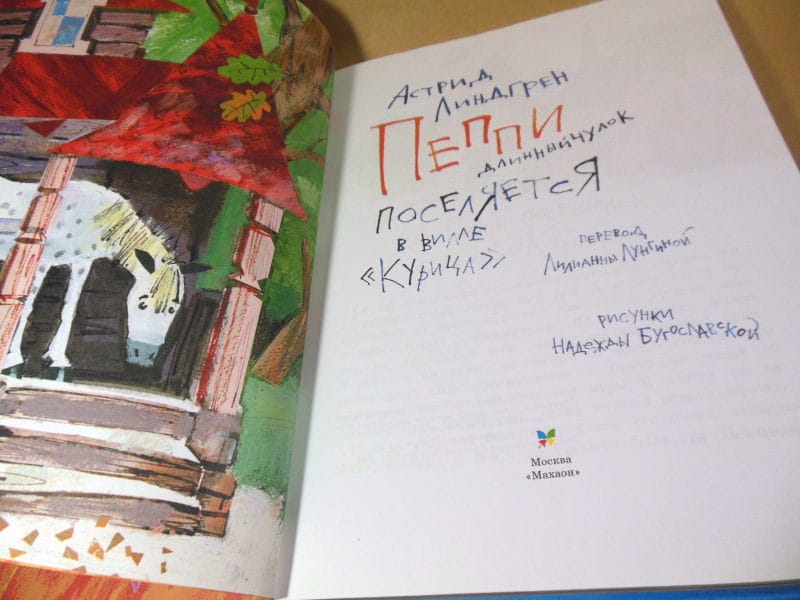 Астрид
Линдгрен
Пеппи
длинныйчулок
поселяется
в вилле
«Курица»
перевод
Лилианны Лунгиной
рисунки
Надежды Бугославской
Москва
«Махаон»